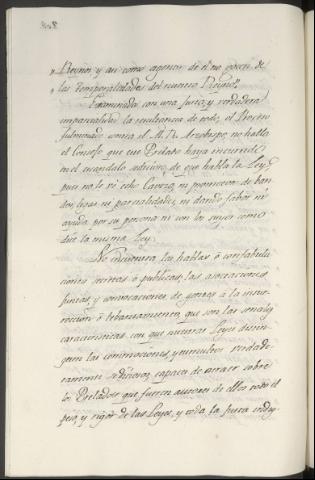 „ Reynos y asi como agenos de el no gocen de
„ las temporalidades del nuestro Reyno".
Examinada con una justa, y verdadera
imparcialidad la resultancia de todo el Proceso
fulminado contra el M. R. Arzobispo, no halla
el Consejo que este Prelado haya incurrido
en el escandalo sedicioso de que habla la Ley
pues no le vé echo Caveza, ni promovedor de ban
dos, ligas ni parcialidades, ni dando fabor ni
ayuda por su persona ni con los suyos como
dice la misma Ley.
No encuentra las hablas ó confabula
ciones secretas ó publicas, las asociaciones,
juntas, y convocaciones de gentes á la insu-
rreccion ó lebantamiento, que son las señales
caracteristicas con que nuestras Leyes distin
guen las commociones, y tumultos verdade
ramente sediciosos, capaces de atraer sobre
los Prelados que fueren autores de ellos todo el
peso, y rigor de las Leyes, y toda la justa indig-